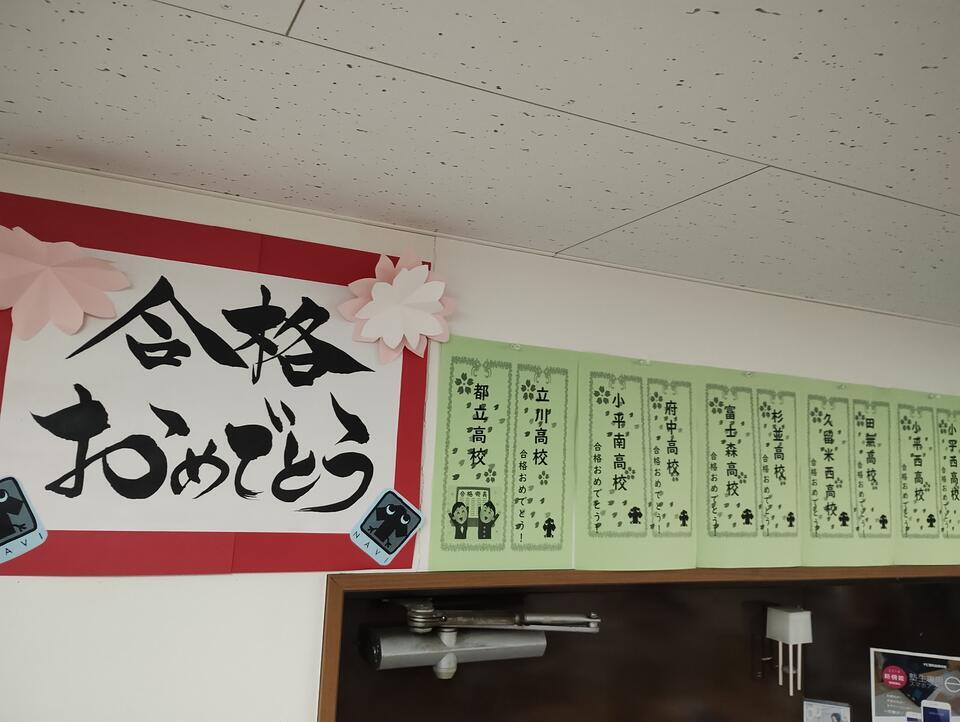 合格
おめでとう
NAVI
NAVI
都立高校
合格発表
立川高校
合格おめでとう!
小平南高校
合格おめでとう!
府中高校
合格おめでとう!
富士森高校
合格おめでとう!
杉並高校
合格おめでとう!
久留米西高校
合格おめでとう!
田無高校
合格おめでとう!
小平西高校
合格おめでとう!
小平西高校
合格おめでとう!
新機能
塾生専用